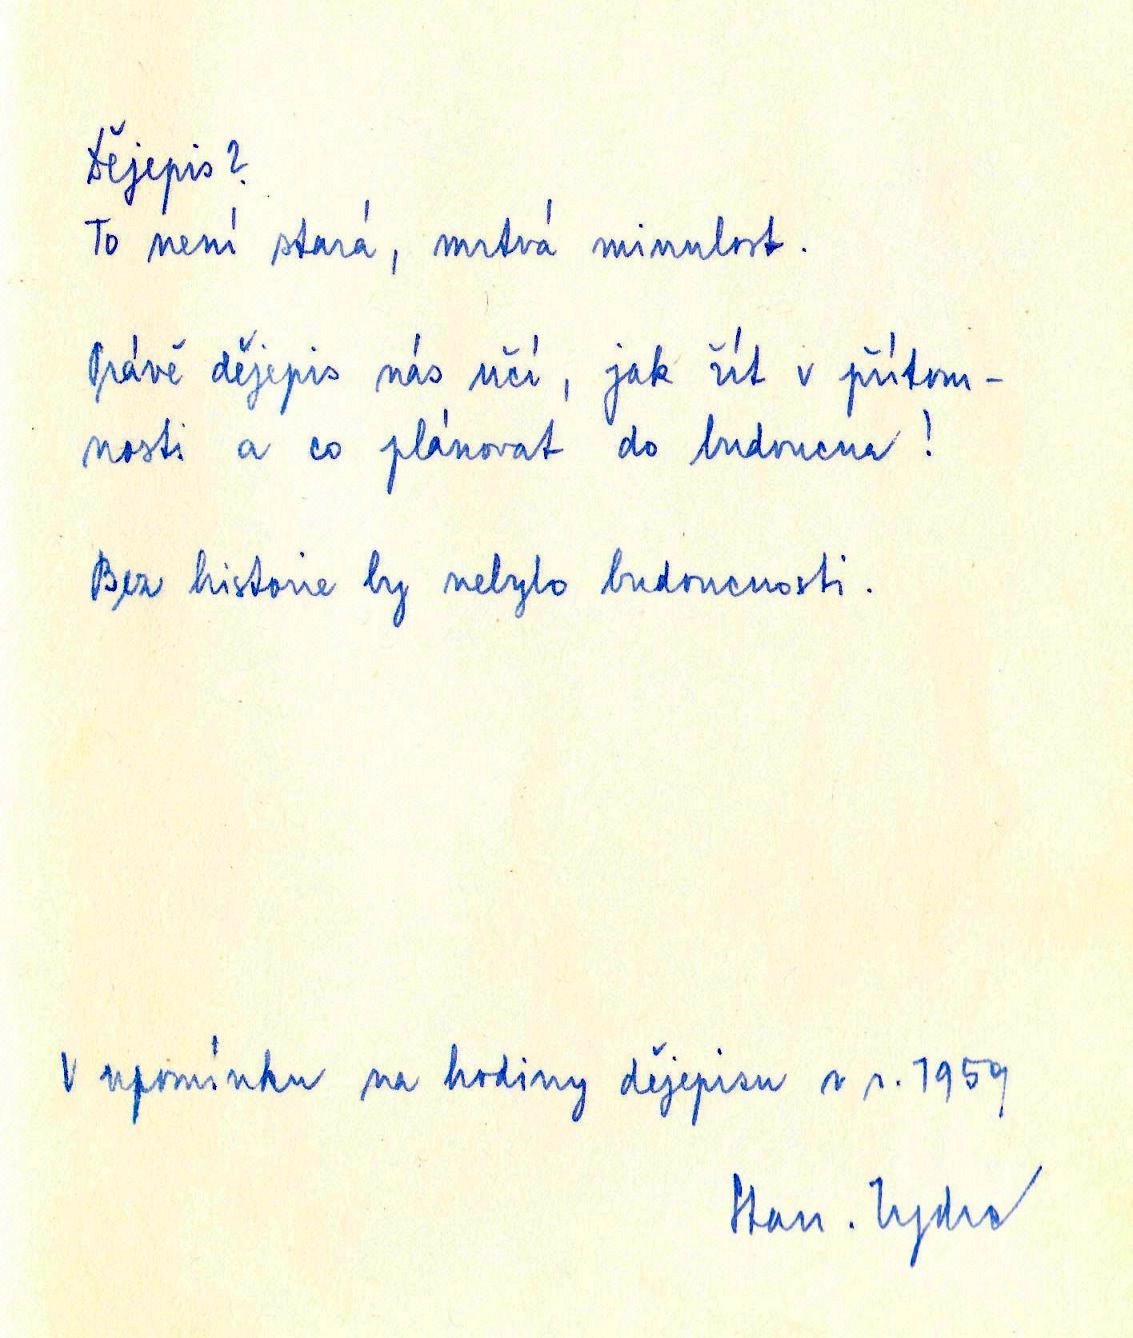 Dějepis?
To není stará, mrtvá minulost.
Právě dějepis nás učí, jak žít v přítom-
nosti a co plánovat do budoucna!
Bez historie by nebylo budoucnosti.
V upomínku na hodiny dějepisu v r. 1959
Stan.